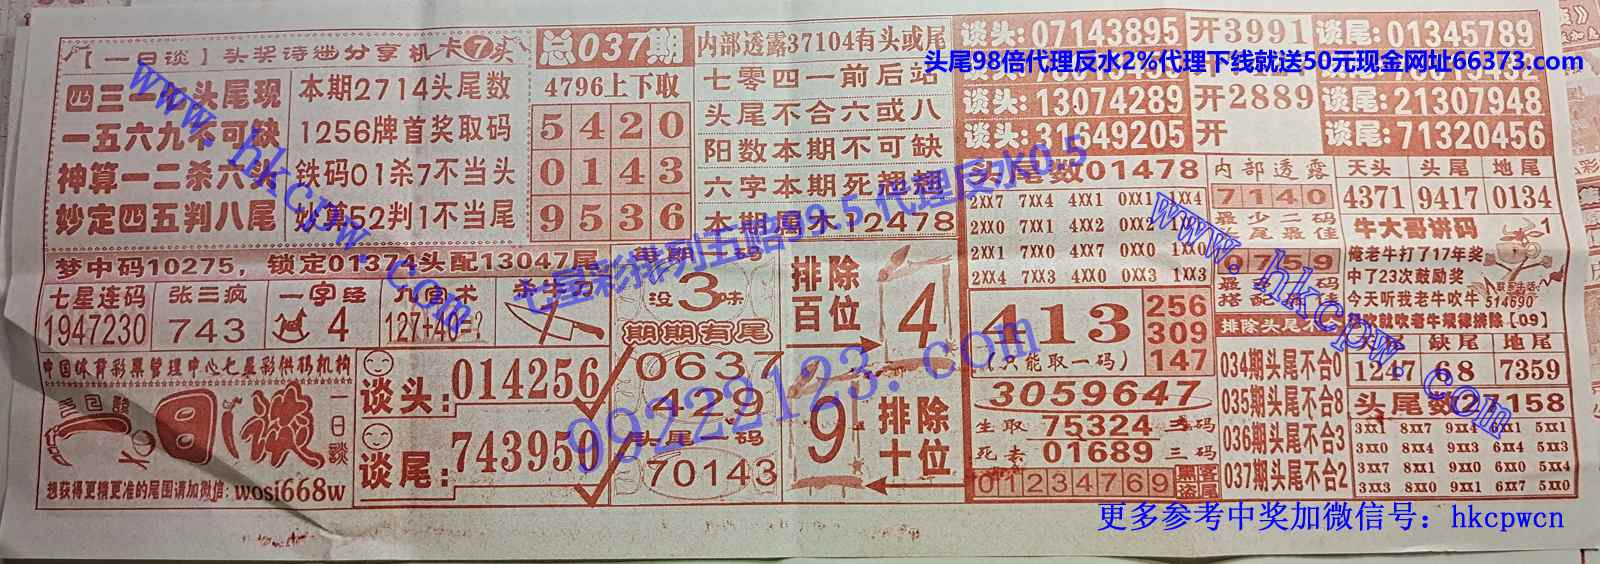 【一日谈】头奖诗谜分享机卡7奖
四三一七头尾现
一五六九不可缺
神算一二杀六头
妙定四五判八尾
本期2714头尾数
1256牌首奖取码
铁码01杀7不当头
妙算52判1不当尾
总037期
4796上下取
5420
0143
9536
内部透露37104有头或尾
七零四一前后站
头尾不合六或八
阳数本期不可缺
六字本期死翘翘
本期属木12478
谈头:07143895 开3991 谈尾:01345789
谈头:13074289 开2889 谈尾:21307948
谈头:31649205 开 谈尾:71320456
头尾98倍代理反水2%代理下线就送50元现金网址66373.com
梦中码10275，锁定01374头配13047尾
七星连码
1947230
张三疯
743
一字经
4
九宫术
127+40=?
中国体育彩票管理中心七星彩供码机构
一日谈
一日谈
想获得更精更准的尾图请加微信:wosi668w
谈头:014256
谈尾:743950
没3味
期期有尾
0637
429
头尾一码
70143
排除百位
4
9
排除十位
头尾数01478
2XX7 7XX4 4XX1 0XX1 1XX4
2XX0 7XX1 4XX2 0XX2 1XX
2XX1 7XX0 4XX7 0XX4 1XX0
2XX4 7XX3 4XX0 0XX3 1XX3
413
(只能取一码)
256
309
147
3059647
生取 75324 三码
死素 01689 三码
01234769
黑客盗尾
内部透露
7140
最少二码
头尾最佳
0759
搭配最佳
034期头尾不合0
035期头尾不合8
036期头尾不合3
037期头尾不合2
天头 头尾 地尾
4371 9417 0134
牛大哥讲码
俺老牛打了17年奖
中了23次鼓励奖
今天听我老牛吹牛
我吹就吹老牛规律排除【09】
1
联系电话
514690
缺尾 地尾
1247 68 7359
头尾数27158
3XX1 8XX7 9XX4 6XX1 5XX1
3XX7 8XX1 9XX0 6XX 5XX
3XX0 8XX4 9XX1 6XX0 5XX
3XX3 8XX0 9XX1 6XX7 5XX0
www.hkcpw.com
www.hkcpw.com
七星彩排列五赔99.5 代理反水0.5
09222123.com
更多参考中奖加微信号：hkcpwcn